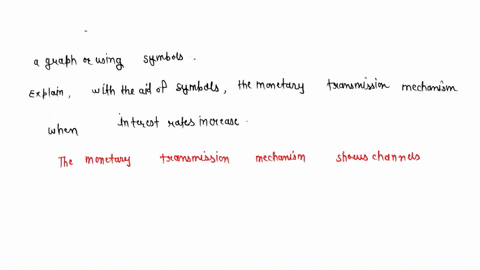 a graph or using symbols.
Explain, with the aid of symbols, the monetary transmission mechanism
when interest rates increase.
The monetary transmission mechanism shows channels